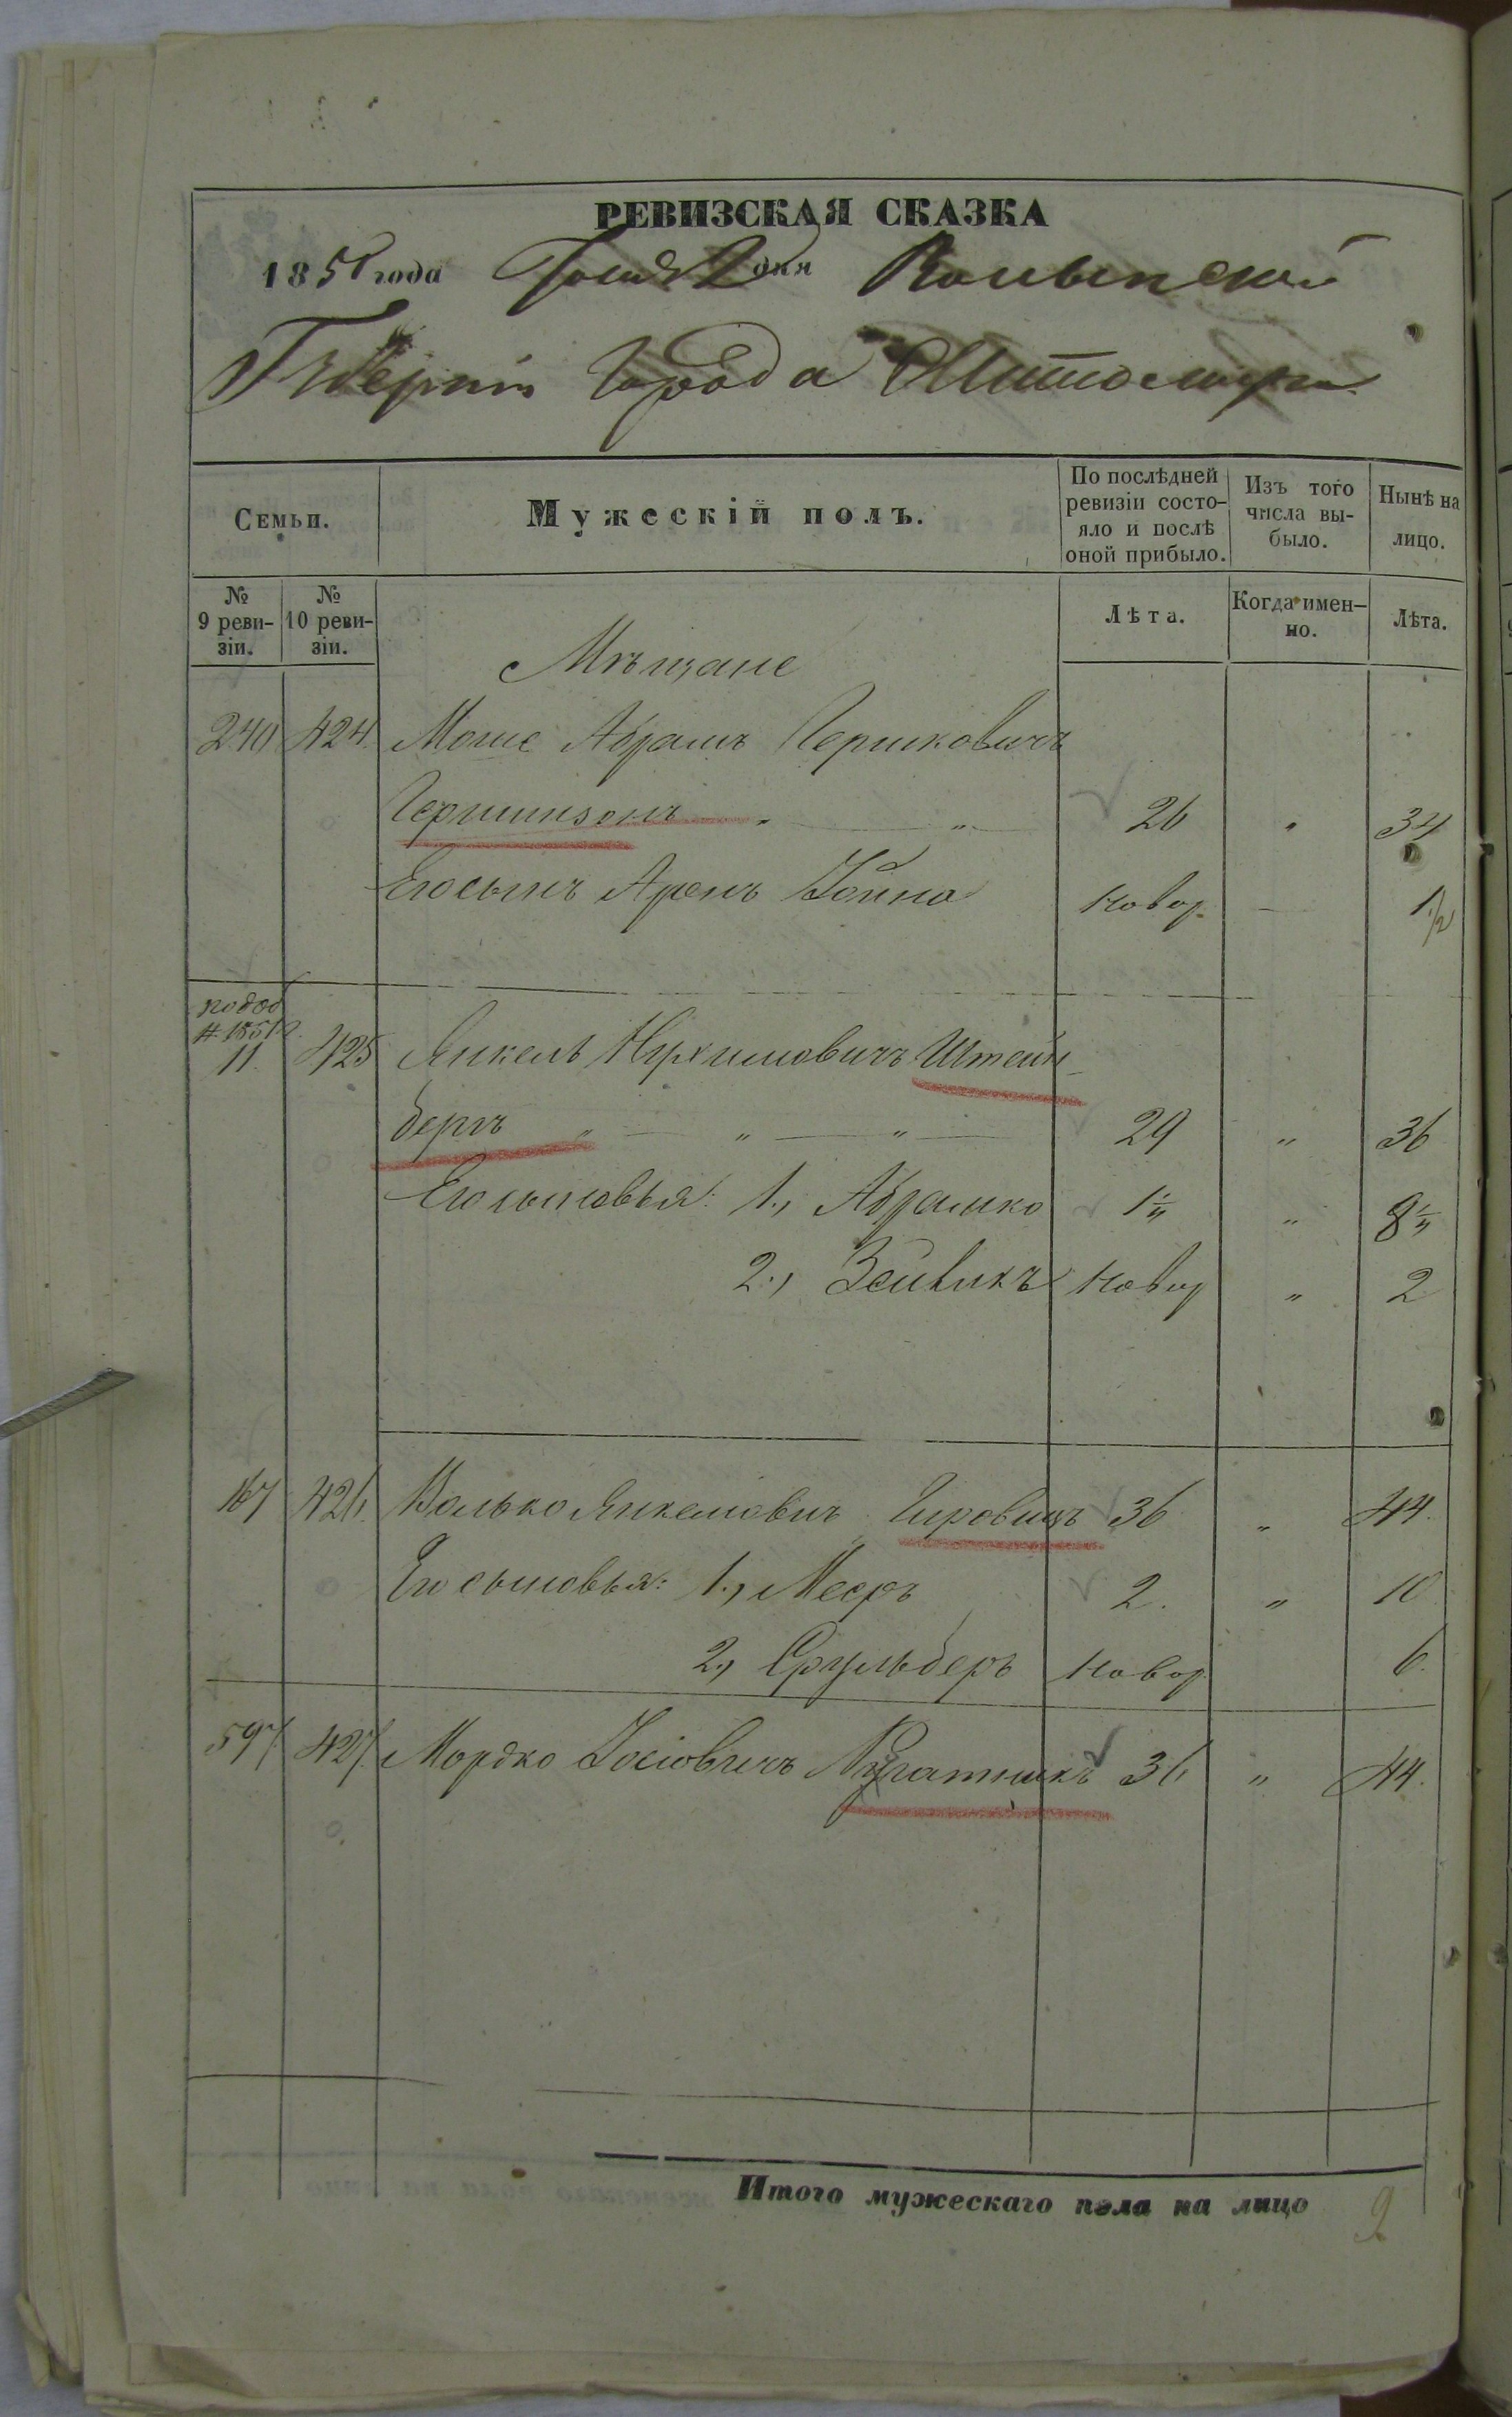 РЕВИЗСКАЯ СКАЗКА
1858 года Іюня 2 дня Волынской
Губерніи города Житомира
Семьи.
Мужескій полъ.
По послѣдней ревизіи состо-
яло и послѣ оной прибыло.
Изъ того числа вы-
было.
Нынѣ на лицо.
№ 9 реви-
зіи.
№ 10 реви-
зіи.
Лѣта.
Когда имен-
но.
Лѣта.
Мѣщане
240 424. Мошe Абрамъ Гершковичъ
Гершинзонъ " " 26 " 34
Его сынъ Аронъ Іойна новор. — 1/2
по доб
# 1851 г.
11. 425 Янкель Нухимовичъ Штейн-
бергъ " — " — " — 29 " 36
Его сыновья: 1., Абрамко 1 " 8
2., Зейвикъ новор " 2
167 426. Волько Янкелiовичъ Гировицъ 36 " 44.
Его сыновья: 1., Меєръ 2. " 10
2., Срульберъ новор. 6.
597 427. Мордко Іосіовичъ 36 " 44.
Итого мужескаго пола на лицо 9